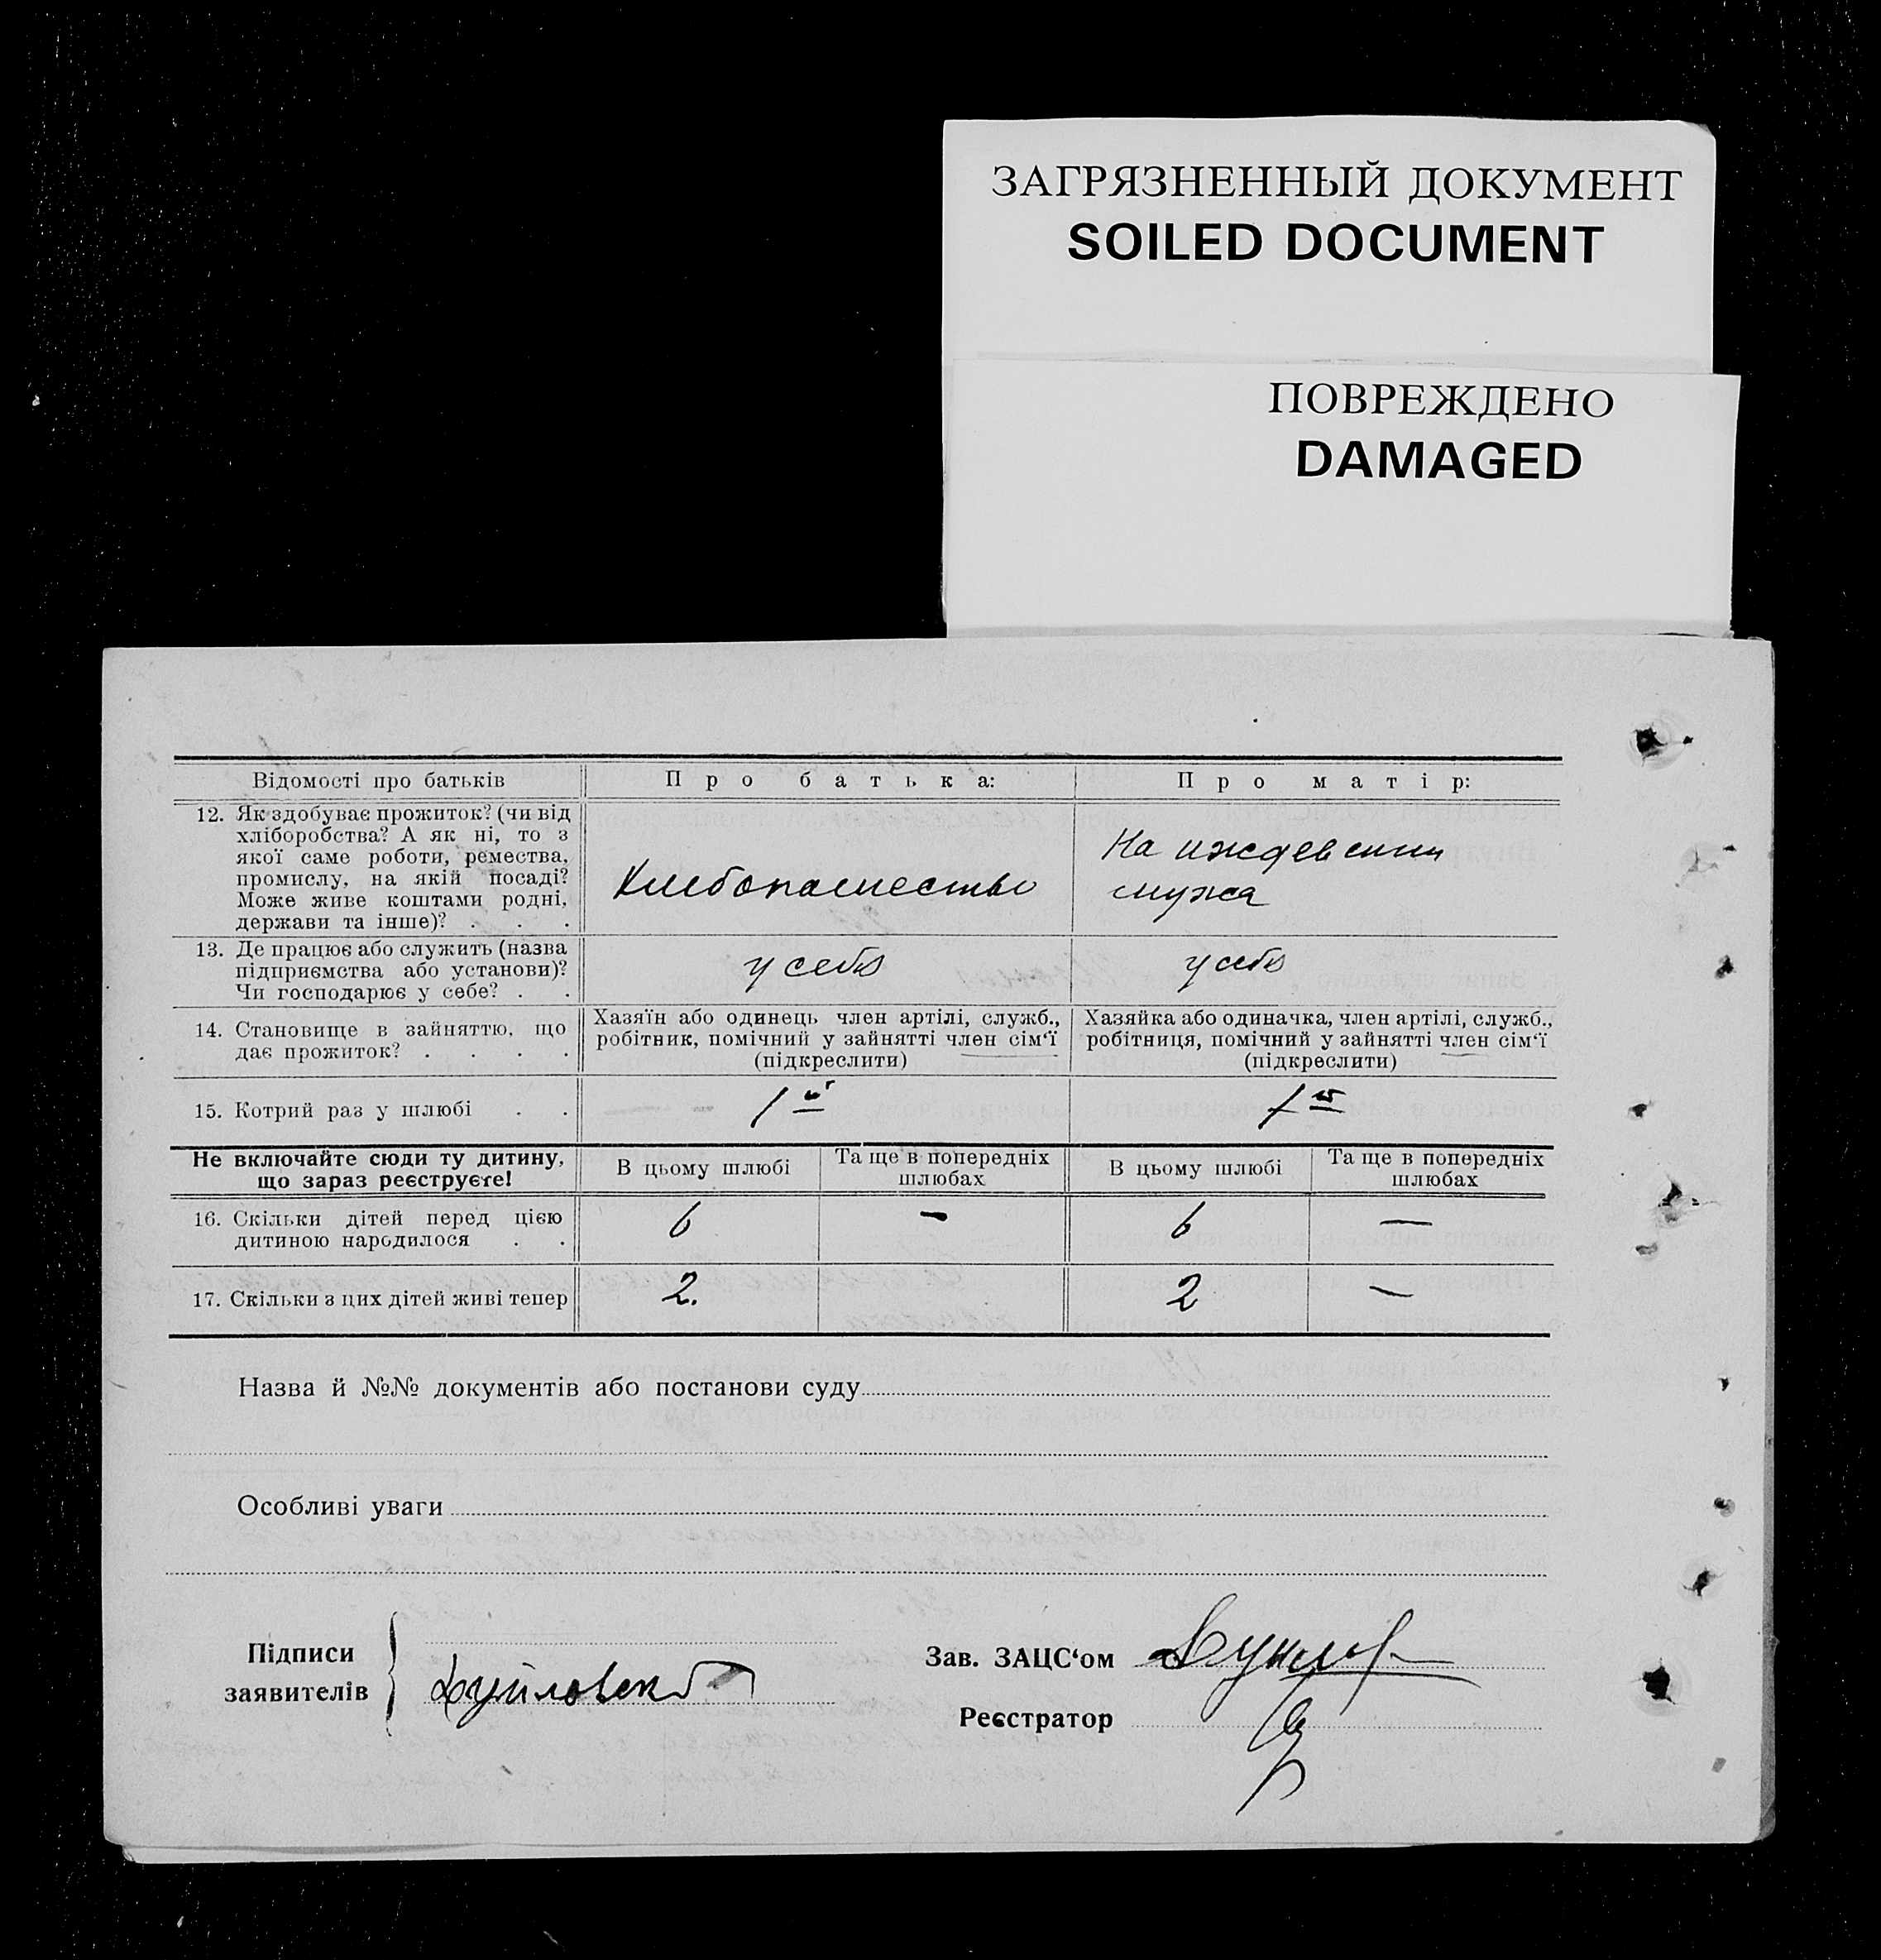 ЗАГРЯЗНЕННЫЙ ДОКУМЕНТ
SOILED DOCUMENT
ПОВРЕЖДЕНО
DAMAGED
Відомості про батьків
Про батька:
Про матір:
12. Як здобуває прожиток? (чи від
хліборобства? А як ні, то з
якої саме роботи, ремества,
промислу, на якій посаді?
Може живе коштами родні,
держави та інше)? . . .
Хлебопашество
На иждевении
мужа
13. Де працює або служить (назва
підприємства або установи)?
Чи господарює у себе? . .
у себя
у себя
14. Становище в зайняттю, що
дає прожиток? . . . .
Хазяїн або одинець член артілі, служб.,
робітник, помічний у зайнятті член сім‘ї
(підкреслити)
Хазяйка або одиначка, член артілі, служб.,
робітниця, помічний у зайнятті член сім‘ї
(підкреслити)
15. Котрий раз у шлюбі . .
1й
1й
Не включайте сюди ту дитину,
що зараз реєструєте!
В цьому шлюбі
Та ще в попередніх
шлюбах
В цьому шлюбі
Та ще в попередніх
шлюбах
16. Скільки дітей перед цією
дитиною народилося . .
6
—
6
—
17. Скільки з цих дітей живі тепер
2.
2
—
Назва й №№ документів або постанови суду
Особливі уваги
Підписи
заявителів
Зав. ЗАЦС‘ом
Реєстратор